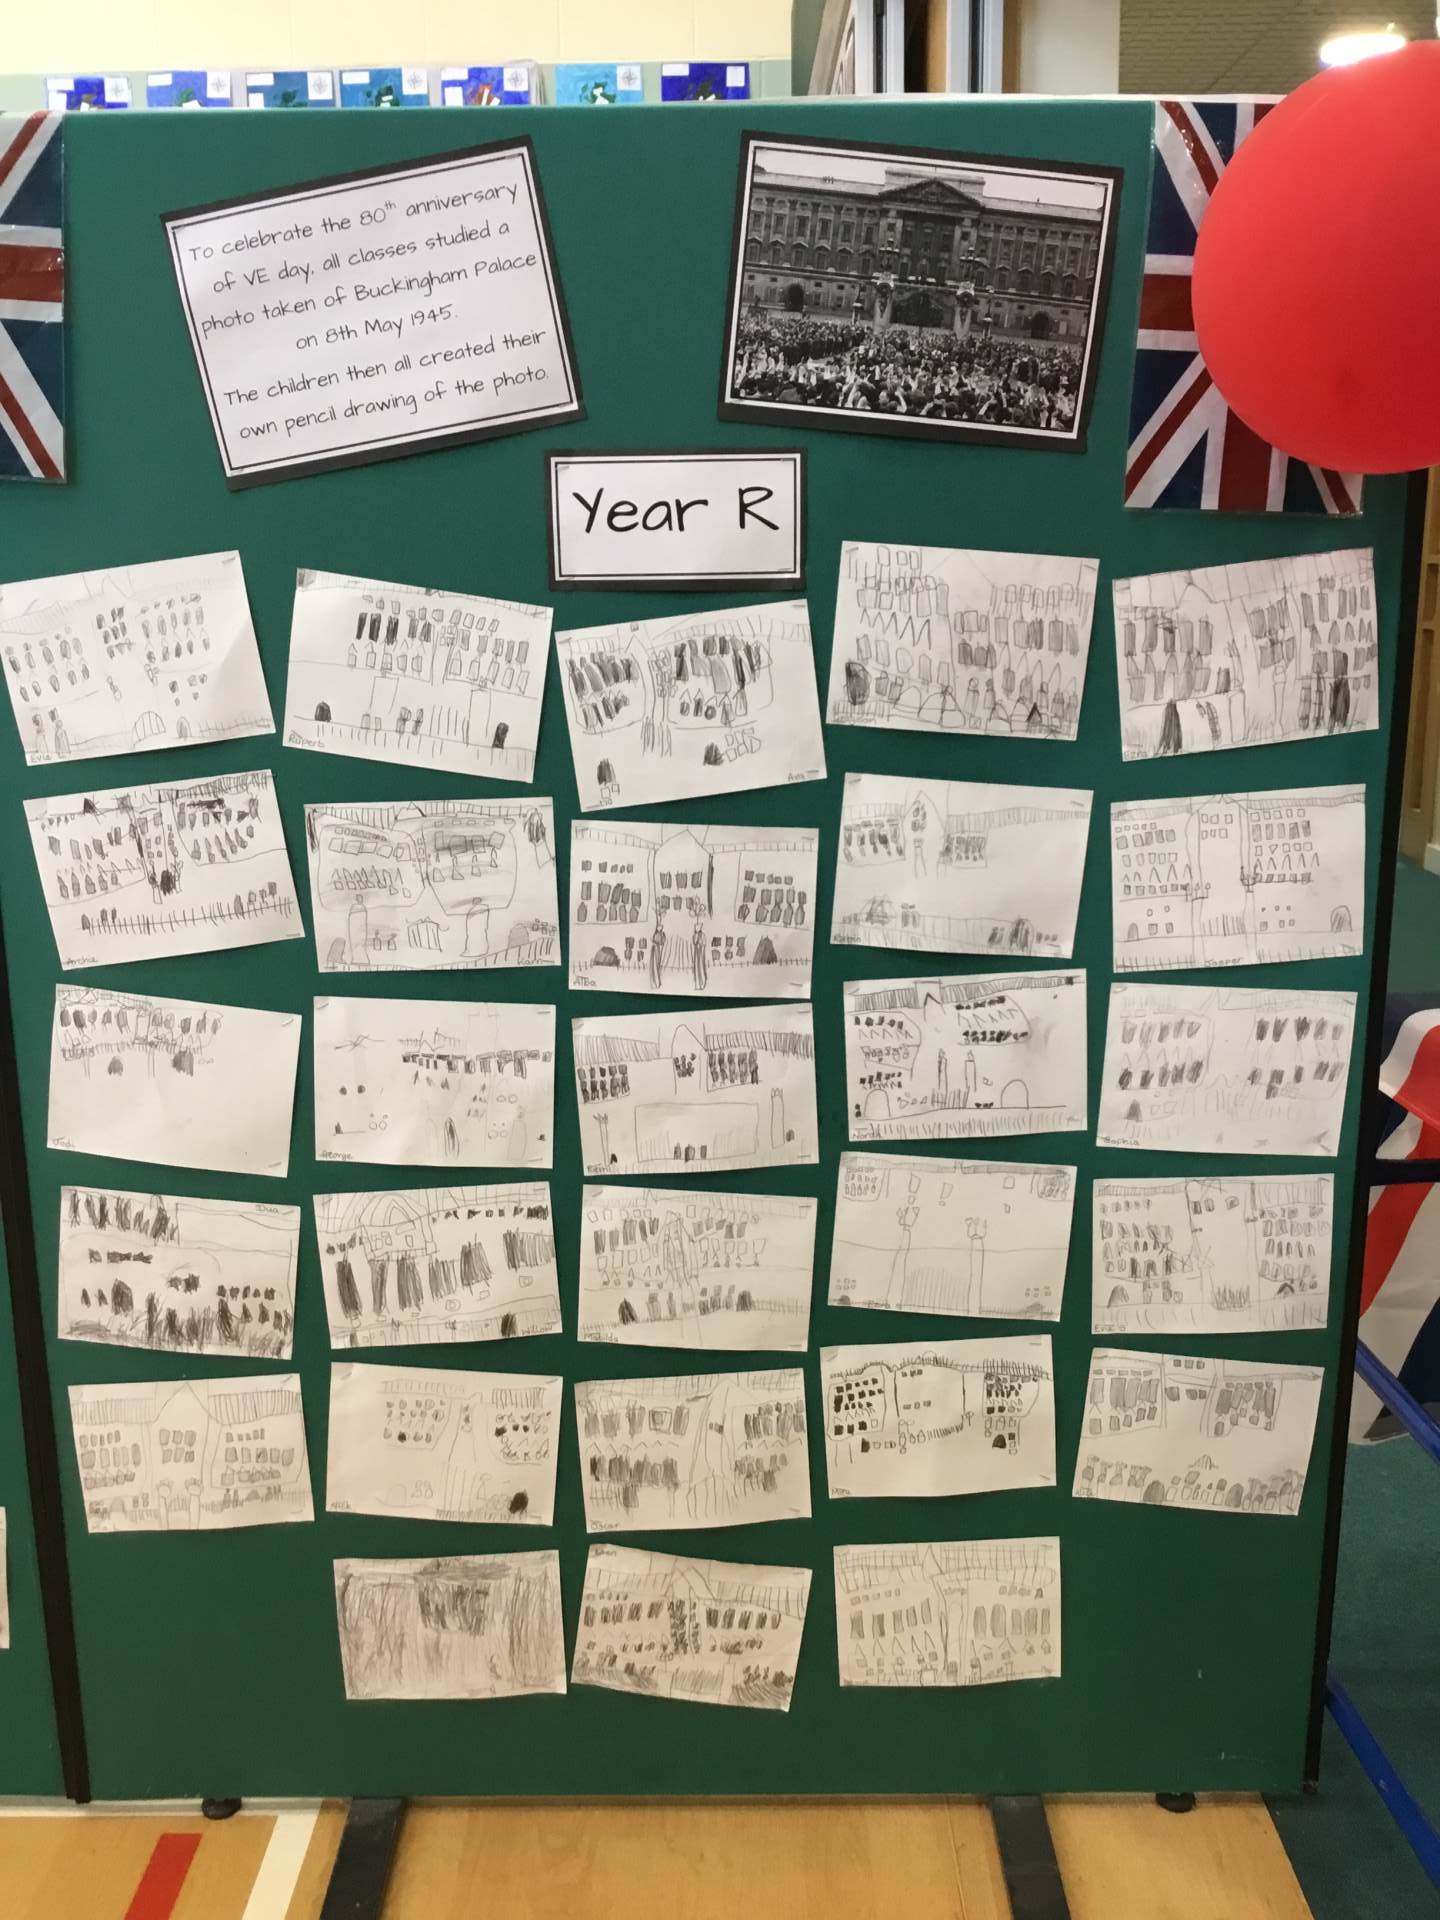 To celebrate the 80th anniversary
of VE day, all classes studied a
photo taken of Buckingham Palace
on 8th May 1945.
The children then all created their
own pencil drawing of the photo.
Year R
Evie
Rupert
Ava
Ezra
Archie
Alba
Jasper
George
Remi
Norah
Sophia
Dua
Willow
Matilda
Oscar